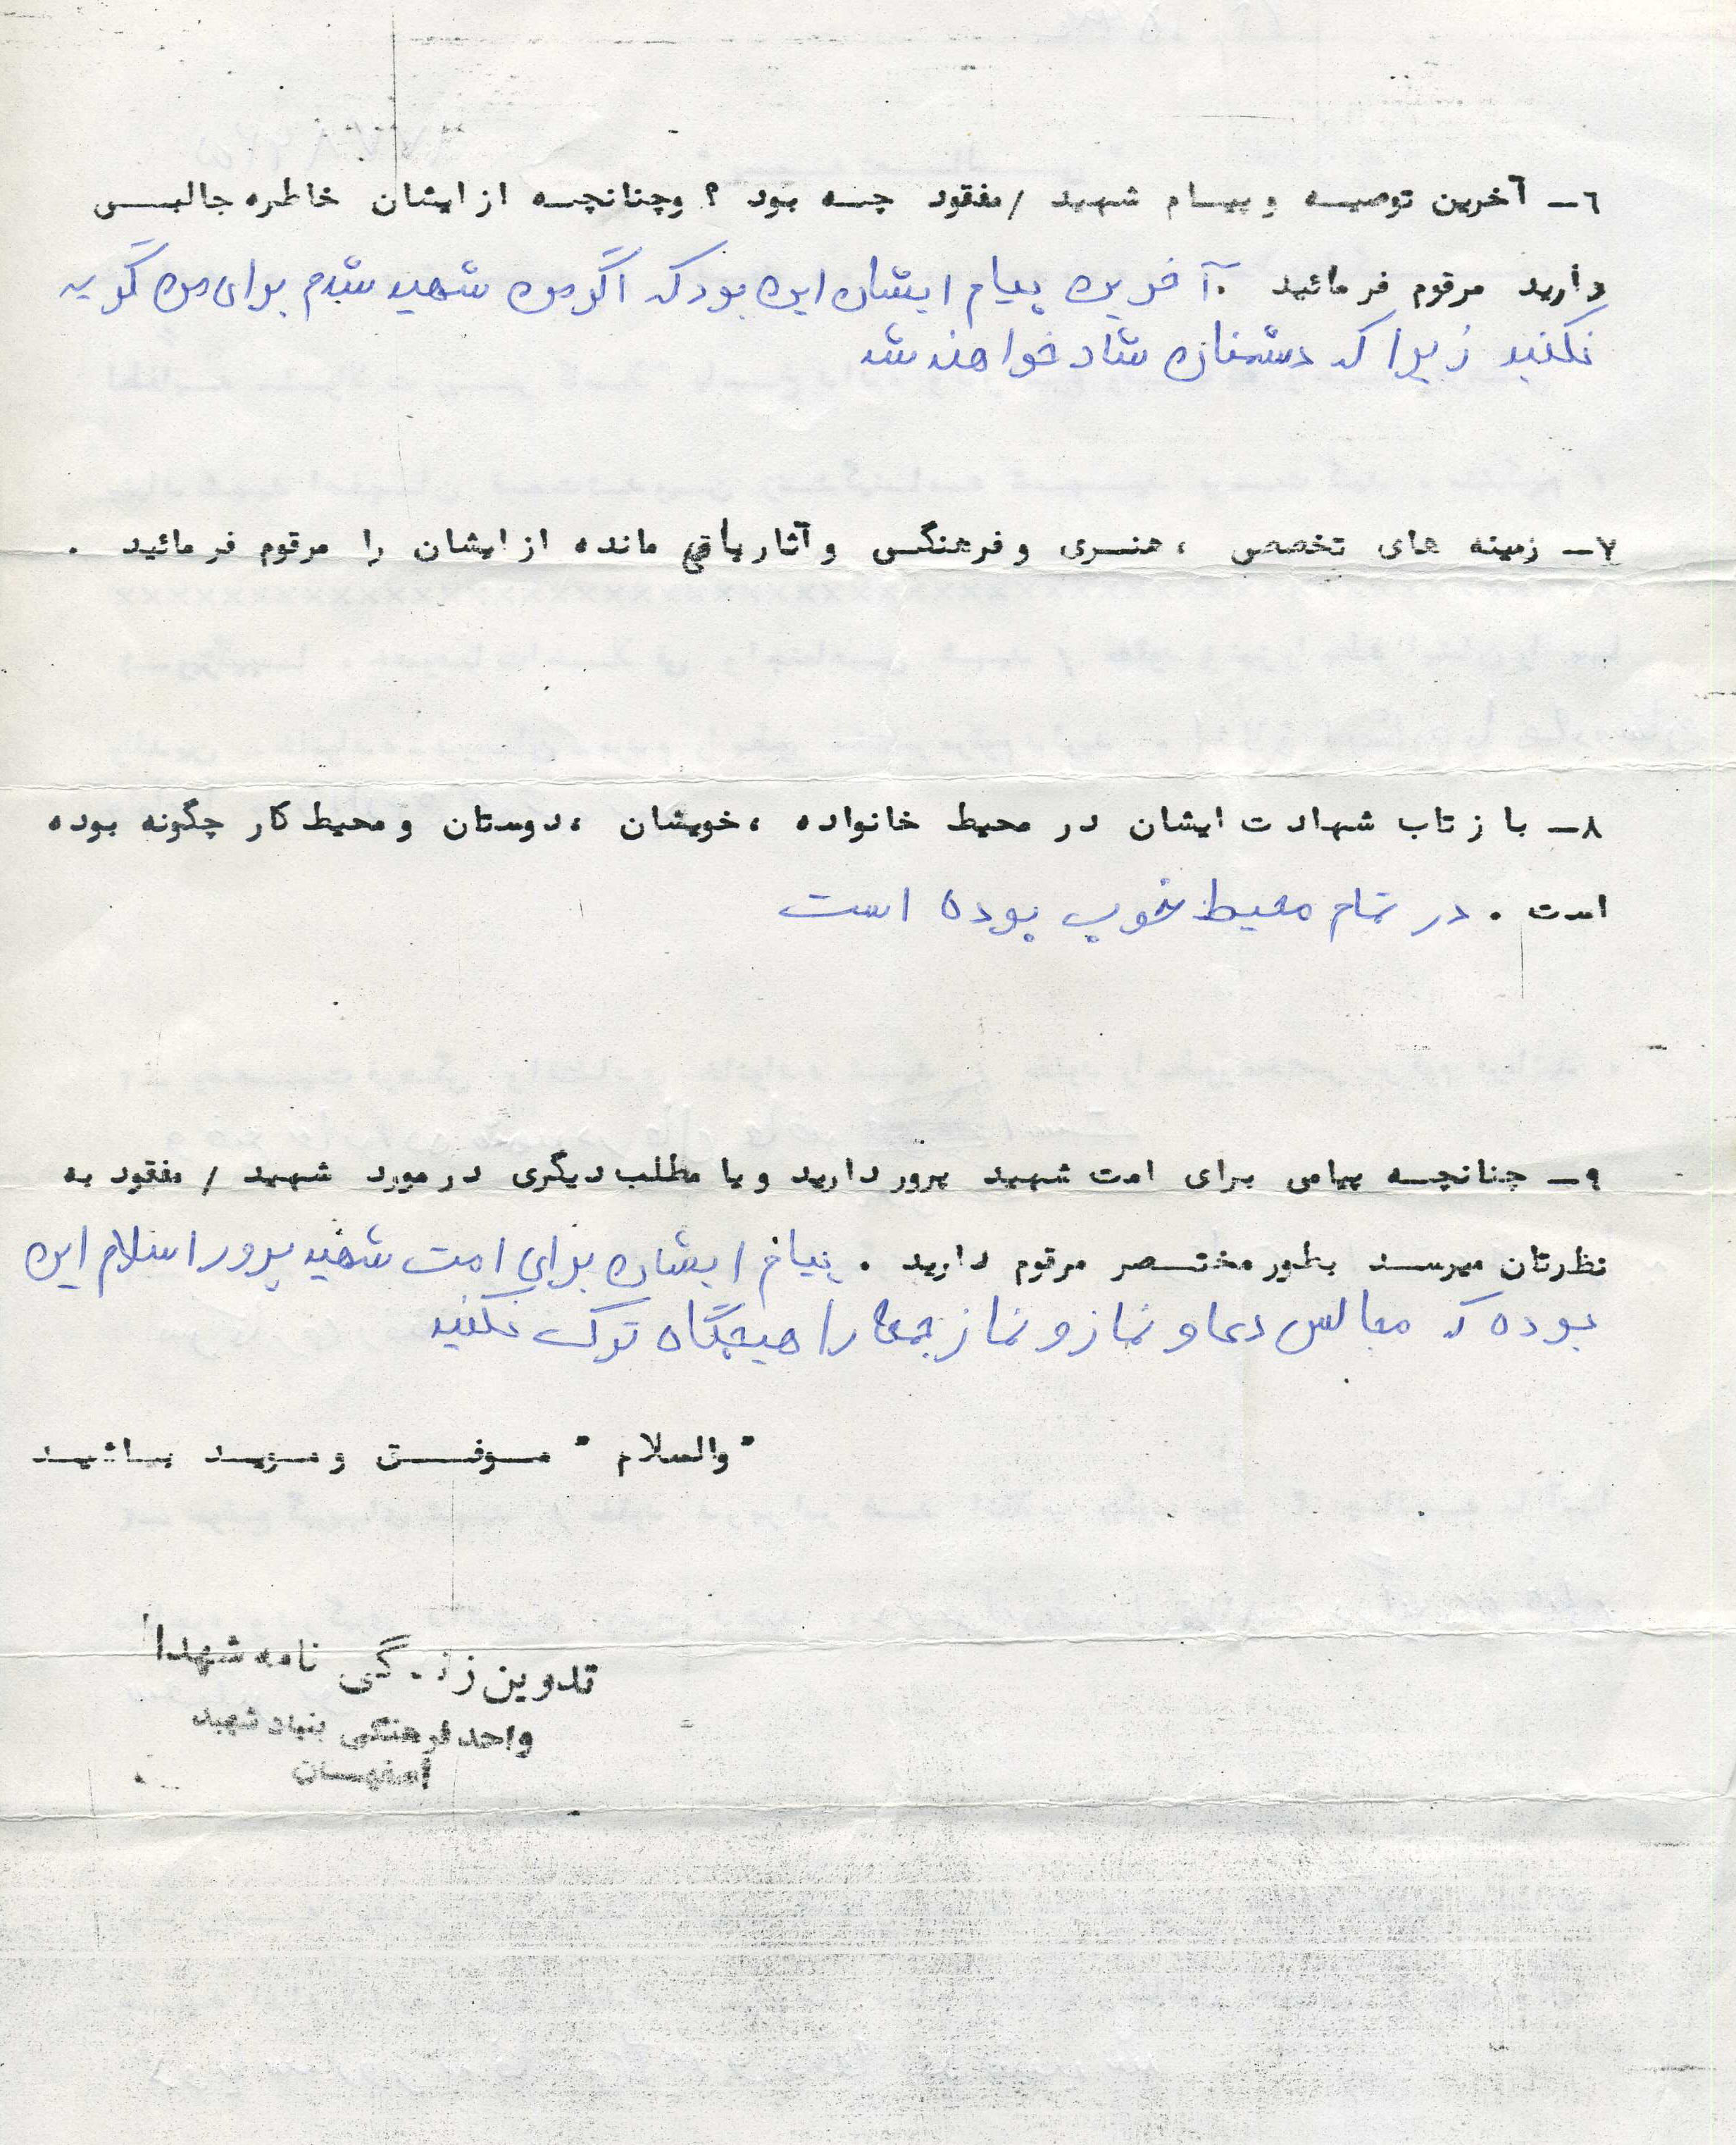 ٦ـ آخرین توصیـه و پیـام شهید /مفقود چـه بود ؟ وچنانچـه از ایشان خاطره جالبـی
دارید مرقوم فرمائید . آخرین پیام ایشان این بود که اگر من شهید شدم برای من گریه
نکنید زیرا که دشمنان شاد خواهند شد
۷ـ زمینه های تخصصی ، هنـری و فرهنگـی و آثار باقی مانده از ایشان را مرقوم فرمائید .
۸ـ باز تاب شهادت ایشان در محیط خانواده ،خویشان ،دوستان و محیط کار چگونه بوده
است . در تمام محیط خوب بوده است
۹ـ چنانچـه پیامی برای امت شهید پرور دارید و یا مطلب دیگری در مورد شهید / مفقود به
نظرتان میرسـد بطور مختـصر مرقوم دارید . پیام ایشان برای امت شهید پرور اسلام این
بوده که مجالس دعا و نماز و نماز جمعه را هیچگاه ترک نکنید
" والسلام " مـوفـق و مـویـد بـاشیـد
تدوین زندگی نامه شهدا
واحد فرهنگی بنیاد شهید
اصفهـان